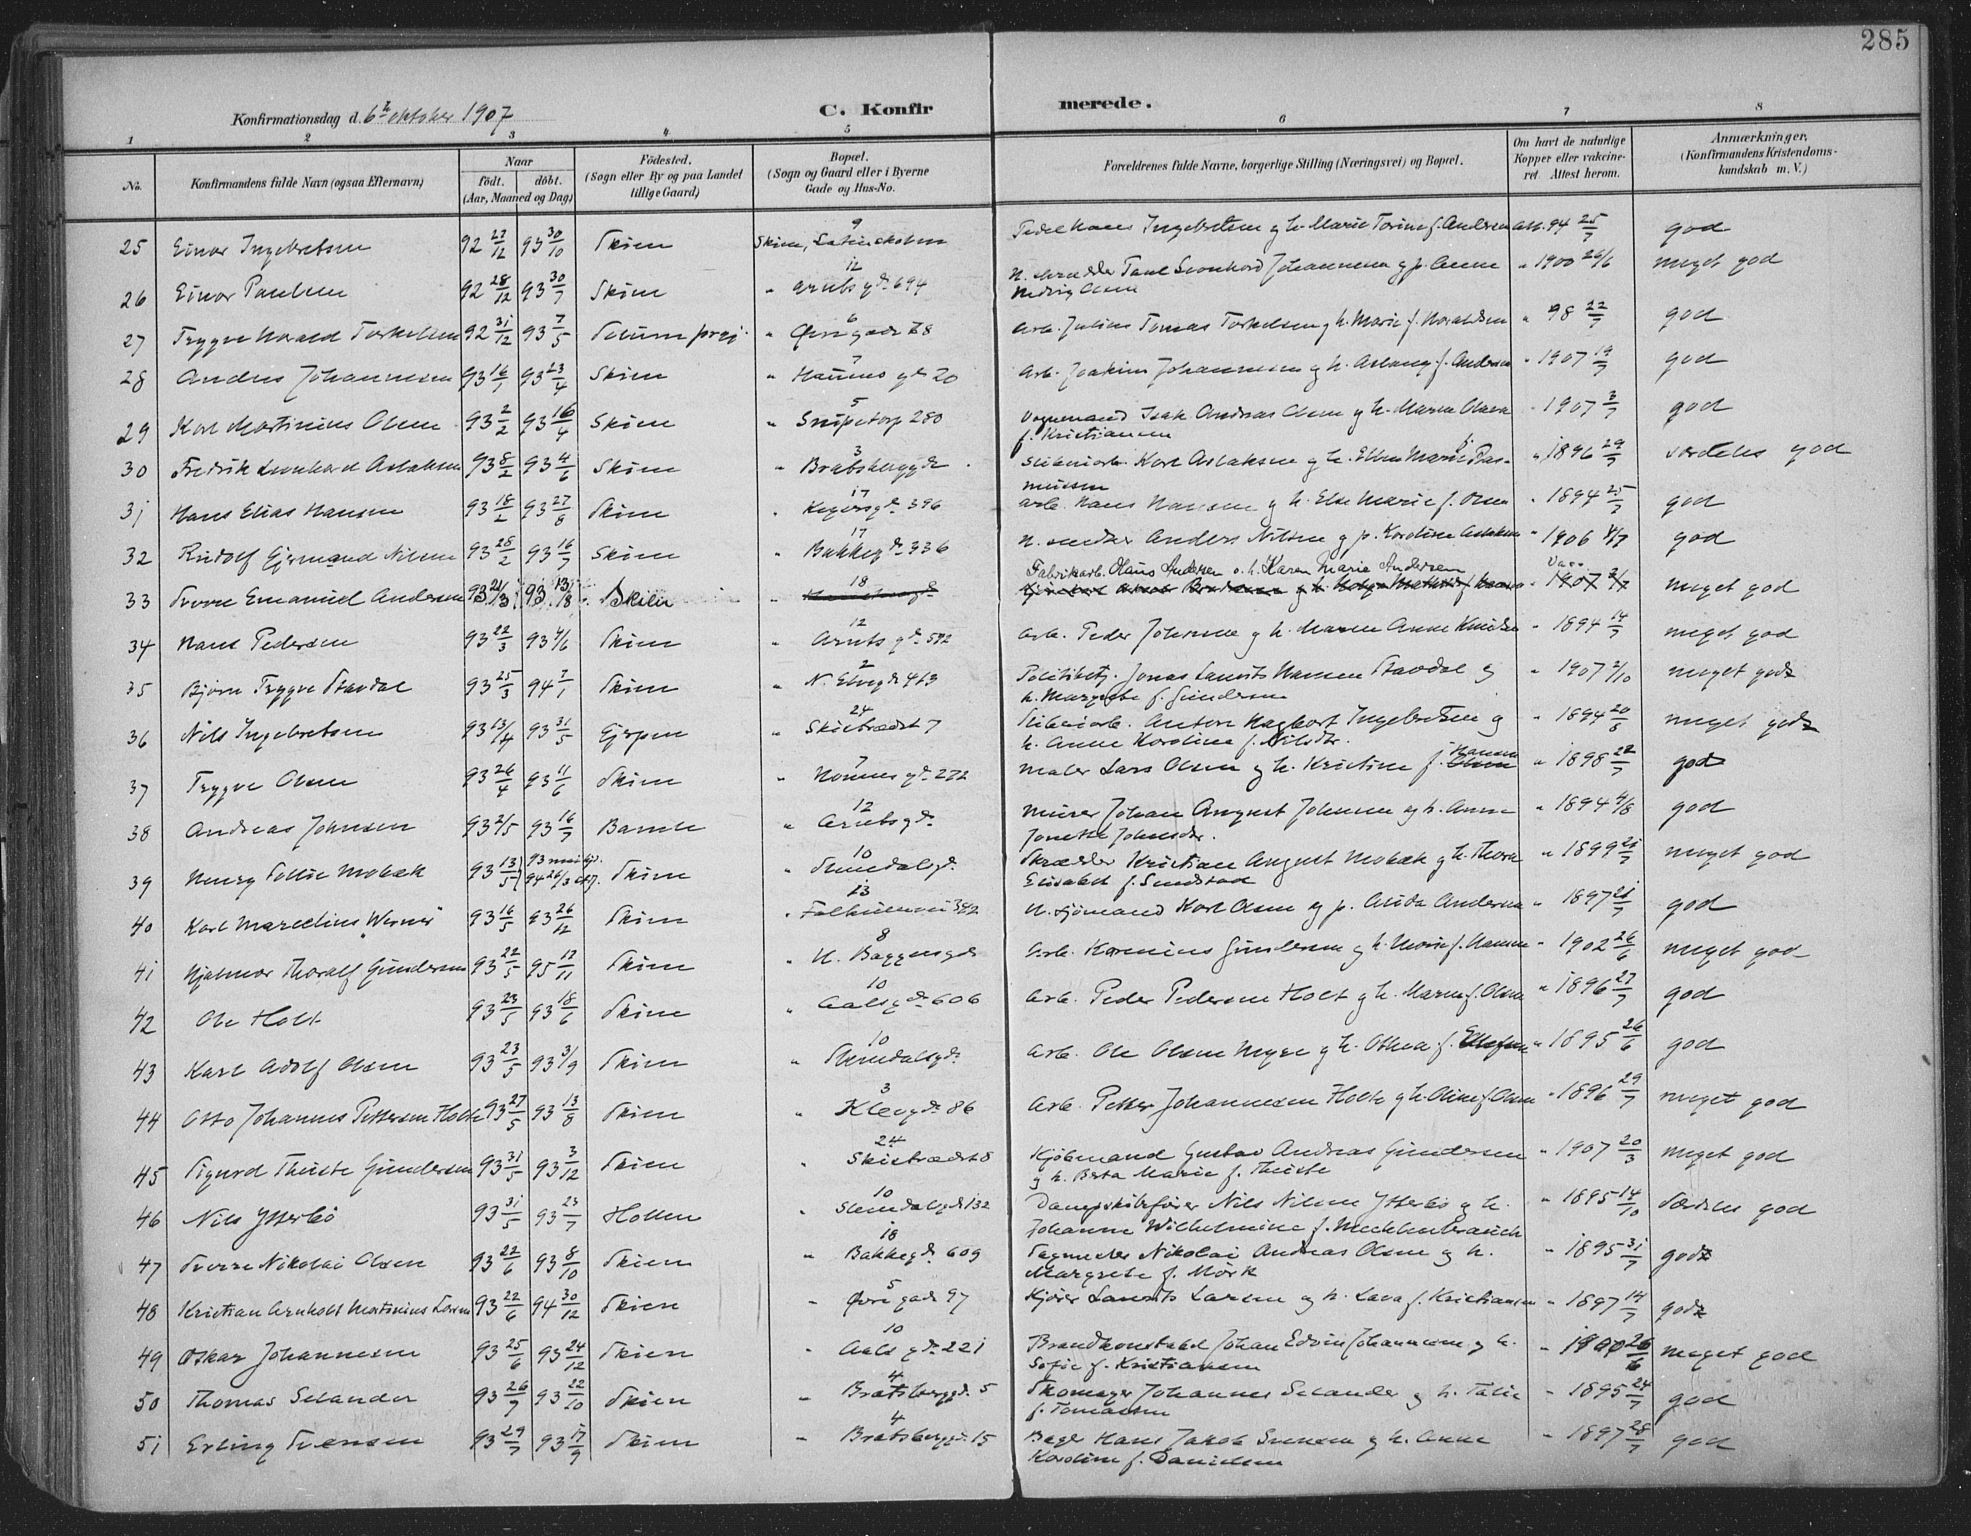 285
Konfirmationsdag d. 6te oktober 1907
C. Konfirmerede.
1 2 3 4 5 6 7 8
No.
Konfirmandens fulde Navn (ogsaa Efternavn)
Naar
födt. döbt.
(Aar, Maaned og Dag)
Födested.
(Sogn eller By og paa Landet
tillige Gaard)
Bopæl.
(Sogn og Gaard eller i Byerne
Gade og Hus-No.
Forældrenes fulde Navne, borgerlige Stilling (Næringsvei) og Bopæl.
Om havt de naturlige
Kopper eller vakcine-
ret. Attest herom.
Anmærkninger.
(Konfirmandens Kristendoms-
kundskab m. V.)
25 Einar Ingebretsen 92 22/12 93 30/10 Skien Skien, 9 Hans Ingebretsen g h. Marie f. Andersen att. 94 25/7 god
26 Einar Paulsen 92 28/12 93 30/7 Skien " 12 Arnts gd. 694 Johannesen g p. Anne " 1900 26/6 meget god
Hedvig Olsen
27 Trygve Harald Torkelsen 92 31/12 93 7/5 Solum præj. " 6 Øvregade 78 Arb. Julius Tomas Torkelsen g h. Marie f. Haraldsen " 98 22/7 god
28 Anders Johannesen 93 16/1 93 23/4 Skien " 7 gd. 20 Arb. Joakim Johannesen g h. Aslaug f. Andersen " 1907 19/7 god
29 Karl Martinius Olsen 93 2/2 93 16/4 Skien " 5 Snipetorp 280 Vognmand Isak Andreas Olsen g h. Maren " 1907 3/7 god
f. Kristiansen
30 Fredrik Leonhard Aslaksen 93 8/2 93 4/6 Skien " 3 Bratsberggd. Sliberiarb. Karl Aslaksen g h. Ellen Marie f. Ras- " 1896 29/7 særdeles god
mussen
31 Hans Elias Hansen 93 18/2 93 27/8 Skien " 17 396 Arb. Hans Hansen g h. Else Marie f. Olsen " 1894 25/7 god
32 Rudolf Gjermund Nilsen 93 28/2 93 16/7 Skien " 17 Bakkegd. 336 Anders Nilsen g p. Karoline Aslaksen " 1906 4/7 god
33 Sverre Emanuel Andersen 93 21/3 93 13/8 Skien " 18 Fabrikarb. Olaus Andersen o. h. Karen Marie Andersen 1907 2/7 meget god
34 Hans Pedersen 93 22/3 93 4/6 Skien " 12 Arnts gd. 592 Arb. Peder Johnsen g h. Maren Anne Knudsen " 1894 14/7 meget god
35 Bjørn Trygve Stavdal 93 25/3 94 7/1 Skien " 2 N. Elvegd. 413 Politibetj. Jonas Laurits Hansen Stavdal g " 1907 2/10 meget god
h. Margrete f. Gundersen
36 Nils Ingebretsen 93 13/4 93 31/5 Gjerpen " 24 Skiebrædst 7 Sliberiarb. Anton Hagbart Ingebretsen g " 1894 20/6 meget god
h. Anne Karoline f. Nilsdtr.
37 Trygve Olsen 93 26/4 93 11/6 Skien " 7 gd. 272 Maler Lars Olsen g h. Kristine f. Hansen " 1898 22/7 god
38 Andreas Johnsen 93 2/5 93 16/7 Bamle " 12 Arnts gd. Murer Johan August Johnsen og h. Anne " 1894 4/8 god
Jonette Johnsdtr.
39 Henry Mobæk 93 13/5 93 mai hj. 94 26/3 Skien " 10 Slemdalsgd. Skrædder Kristian August Mobæk g h. Thora " 1899 21/7 meget god
Elisabet f. Sundstad
40 Karl Marcelius Werner 93 16/5 93 26/12 Skien " 13 Falkumvei 342 U. sjömand Karl Olsen g p. Andersen " 1897 21/7 god
41 Hjalmar Thoralf Gundersen 93 22/5 95 17/11 Skien " 8 U. Baggensgd. Arb. Karenius Gundersen g h. Marie f. Hansen " 1902 26/6 meget god
42 Ole Holt 93 23/5 93 18/6 Skien " 10 Aalsgd. 606 Arb. Peder Pedersen Holt g h. Maren f. Olsen " 1896 27/7 god
43 Karl Adolf Olsen 93 23/5 93 3/9 Skien " 10 Slemdalsgd. Arb. Ole Olsen Myre g h. Othea f. Ellefsen " 1895 26/6 god
44 Otto Johannes Pettersen Holte 93 27/5 93 13/8 Skien " 3 Klevgd. 86 Arb. Petter Johannesen Holte g h. Oline f. Olsen " 1896 29/7 meget god
45 Sigurd Thiste Gundersen 93 31/5 93 3/12 Skien " 24 Skiebrædst 8 Kjöbmand Gustav Andreas Gundersen " 1907 20/3 meget god
g h. Berta Marie f. Thiste
46 Nils Ytterbö 93 31/5 93 23/7 Hollen " 10 Slemdalsgd. 132 Dampskibsfører Nils Nilsen Ytterbö g h. " 1895 14/10 særdeles god
Johanne Wilhelmine f. Mecklenbrauch
47 Sverre Nikolai Olsen 93 22/6 93 8/10 Skien " 18 Bakkegd. 609 Sagmester Nikolai Andreas Olsen g h. " 1895 31/7 god
Margrete f. Mørk
48 Kristian Arnholt Martinius Larsen 93 22/6 94 30/12 Skien " 5 Øvregade 97 Kjører Laurits Larsen g h. Lava f. Kristiansen " 1897 14/7 god
49 Oskar Johannesen 93 25/6 93 24/12 Skien " 10 Aals gd. 221 Brandkonstabel Johan Edvin Johannesen g h. " 1900 26/6 meget god
Sofie f. Kristiansen
50 Thomas Selander 93 26/7 93 22/10 Skien " 4 Bratsberggd. 5 Skomager Johannes Selander g h. Talie " 1895 24/7 god
f. Tomassen
51 Erling Svensen 93 29/7 93 17/9 Skien " 4 Bratsberggd. 15 Hans Jakob Svensen g h. Anne " 1897 28/7 god
Karoline f. Danielsen